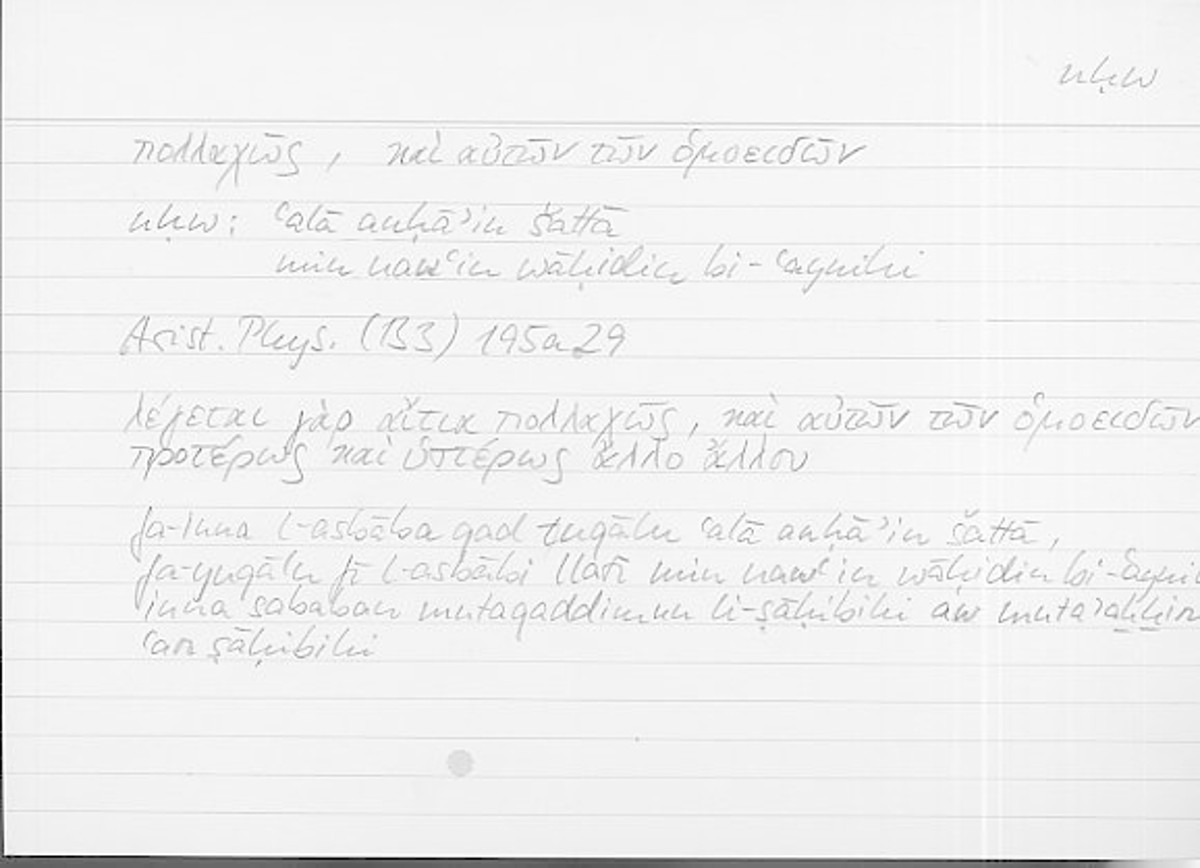 nḥw
πολλαχῶς, καὶ αὐτῶν τῶν ὁμοειδῶν
nḥw: ʿalā anḥāʾin šattā
min nawʿin wāḥidin bi-ʿaynihi
Arist. Phys. (B3) 195a29
λέγεται γὰρ αἴτια πολλαχῶς, καὶ αὐτῶν τῶν ὁμοειδῶν
προτέρως καὶ ὑστέρως ἄλλο ἄλλου
fa-inna l-asbāba qad tuqālu ʿalā anḥāʾin šattā,
fa-yuqālu fī l-asbābi llatī min nawʿin wāḥidin bi-ʿayni
inna sababan mutaqaddimun li-ṣāḥibihi aw mutaʾaḫḫir
ʿan ṣāḥibihi